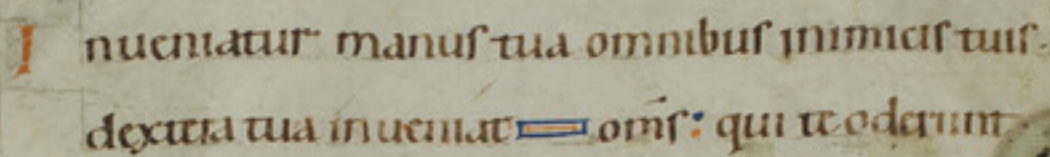 Inueniatur manus tua omnibus inimicis tuis.
dextera tua inueniat om̅s: qui te oderunt.